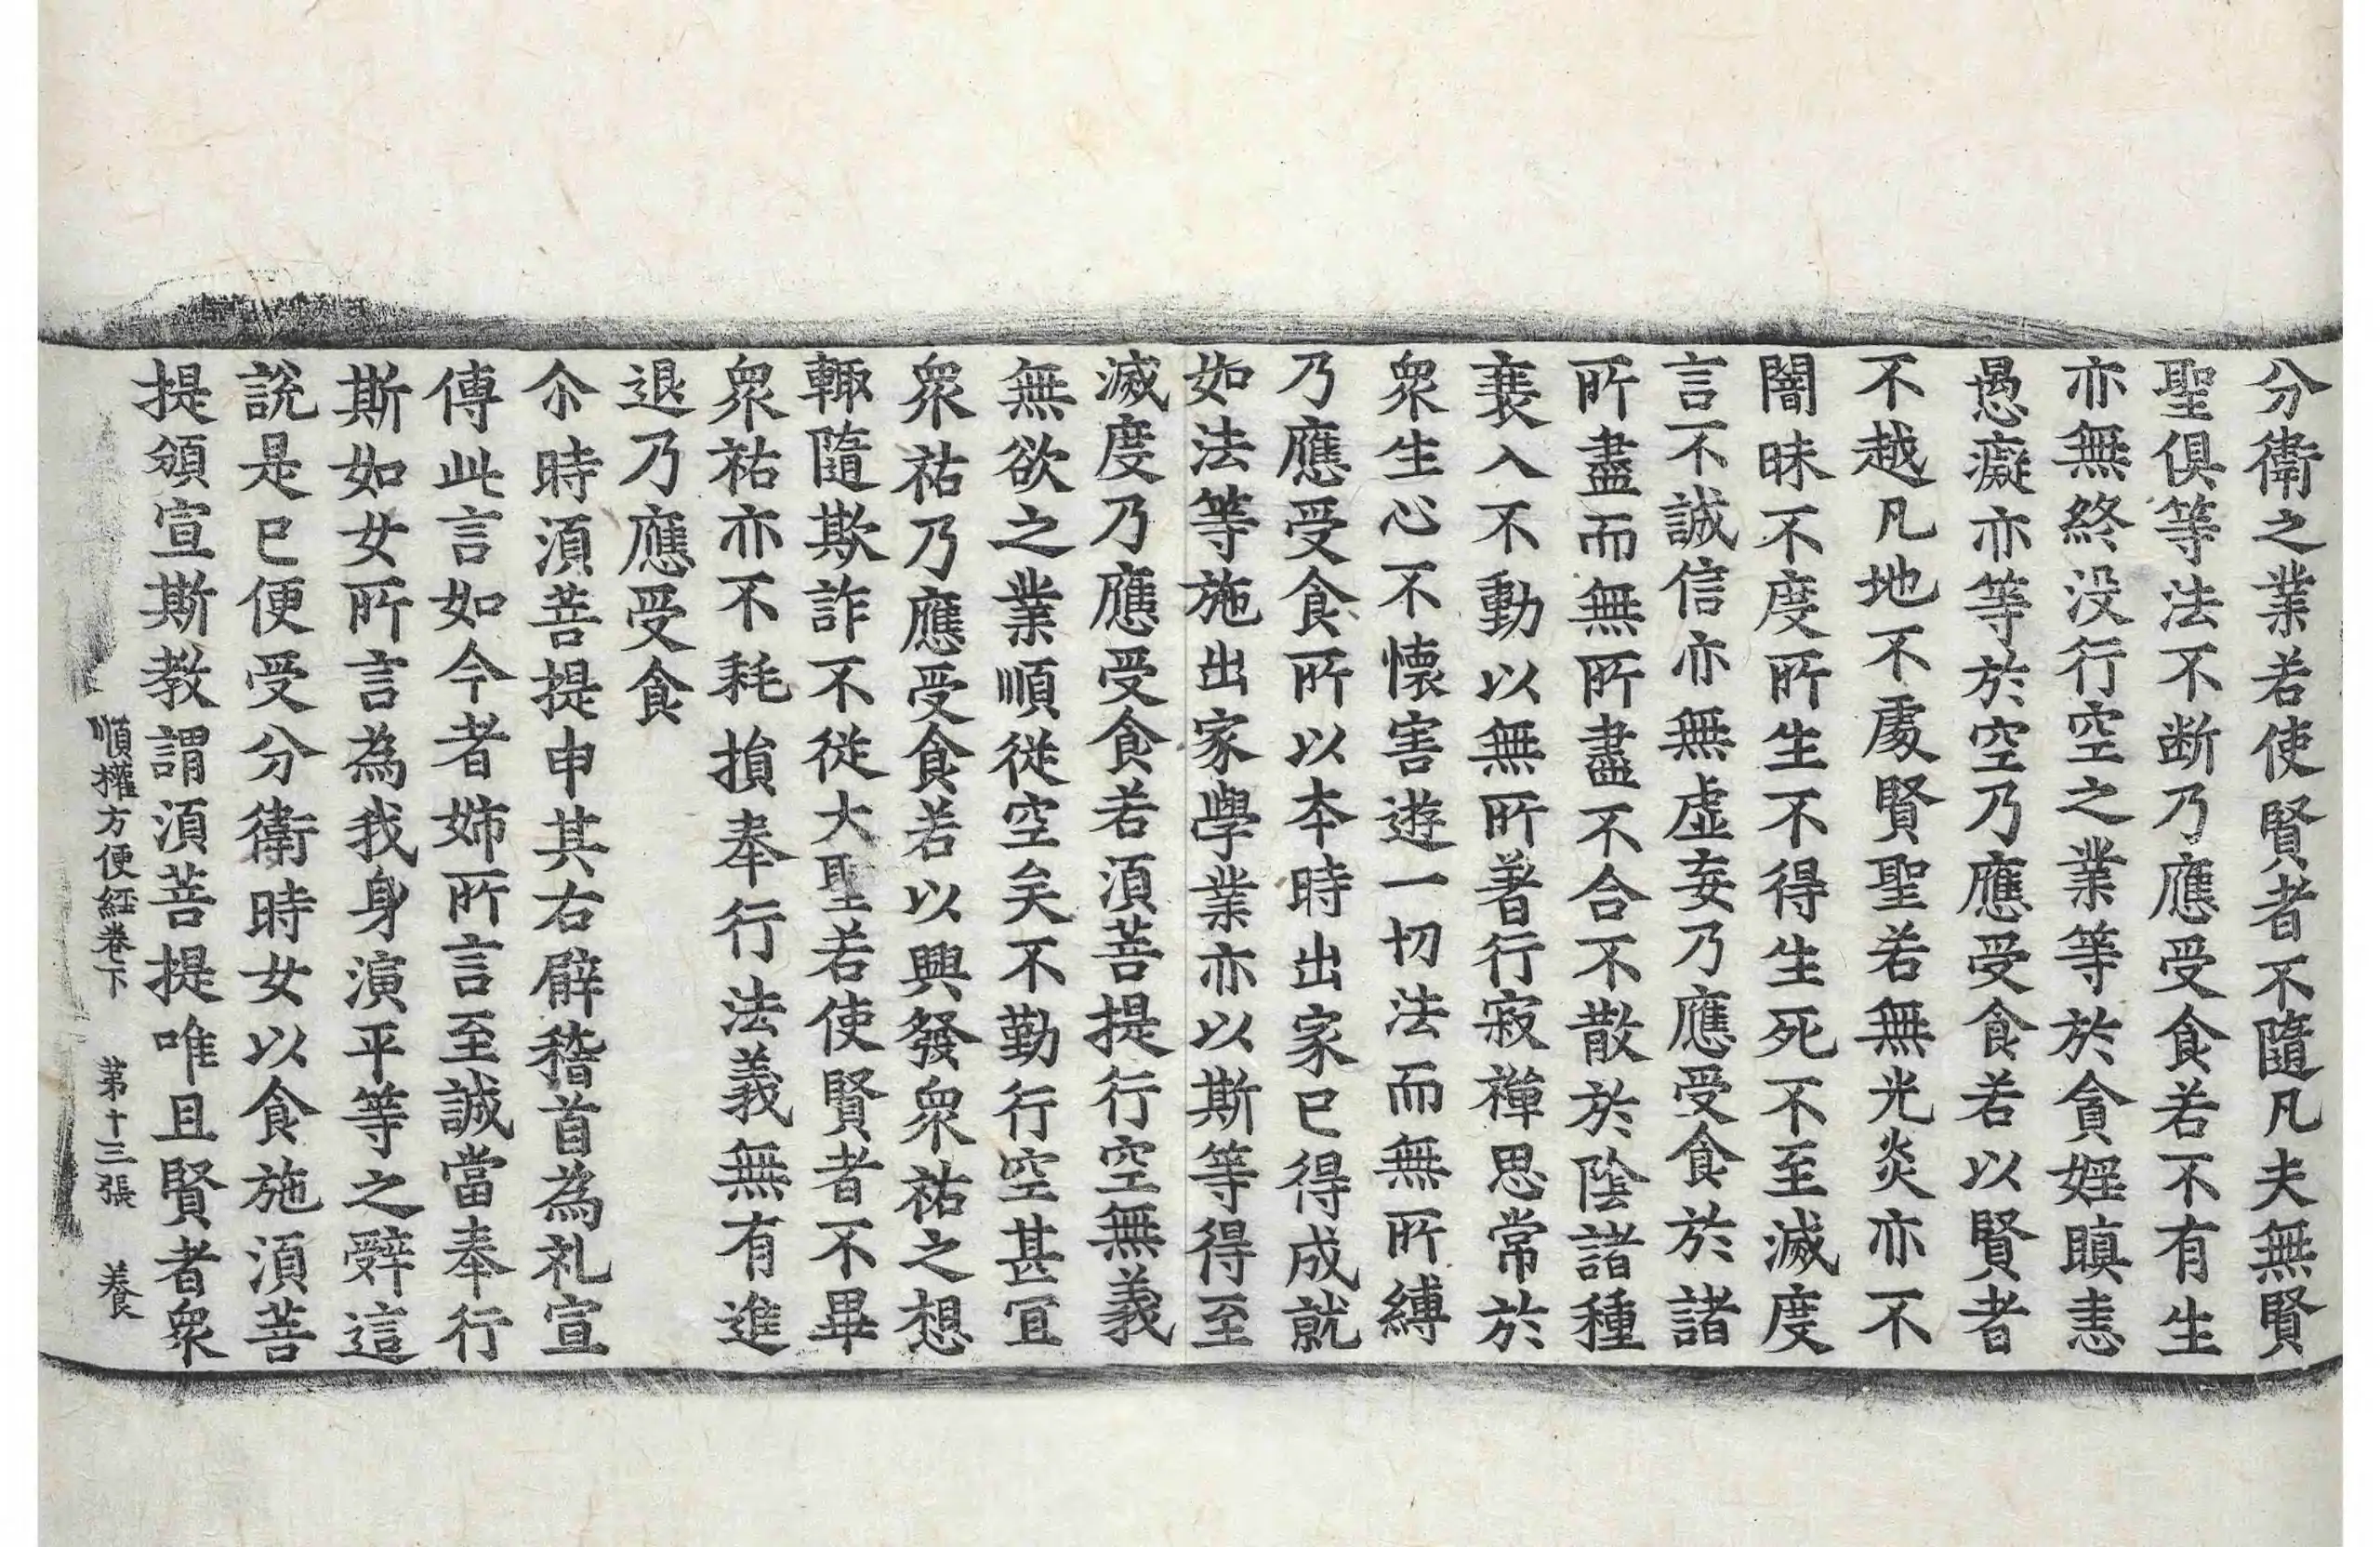 分衛之業若使賢者不隨凡夫無賢
聖俱等法不断乃應受食若不有生
亦無終没行空之業等於貪婬瞋恚
愚癡亦等於空乃應受食若以賢者
不越凡地不處賢聖若無光炎亦不
闇昧不度所生不得生死不至滅度
言不誠信亦無虛妄乃應受食於諸
所盡而無所盡不合不散於陰諸種
衰入不動以無所著行寂禪思常於
衆生心不懷害遊一切法而無所縛
乃應受食所以夲時出家已得成就
如法等施出家學業亦以斯等得至
滅度乃應受食若湏菩提行空無義
無欲之業順從空矣不勤行空甚冝
衆祐乃應受食若以興發衆祐之想
輙隨欺詐不從大聖若使賢者不畢
衆祐亦不耗損奉行法義無有進
退乃應受食
尒時湏菩提申其右臂稽首為礼宣
傳此言如今者姉所言至誠當奉行
斯如女所言為我身演平等之辤這
説是已便受分衛時女以食施湏菩
提頒宣斯教謂湏菩提唯且賢者衆
順權方便経卷下 苐十三張 養